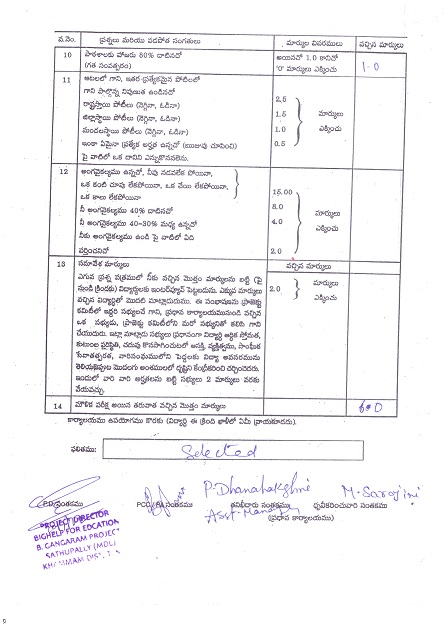 వ.నెం. ప్రశ్నలు మరియు పడపోత సంగతులు మార్కుల వివరములు వచ్చిన మార్కులు
10 పాఠశాలకు హాజరు 80% దాటినచో అయినచో 1.0 కానిచో 1.0
(గత సంవత్సరం) '0' మార్కులు ఎక్కించు
11 ఆటలలో గాని, ఇతర ప్రత్యేకమైన పోటీలలో
గాని పాల్గొన్న నిపుణత ఉండినచో
రాష్ట్రస్థాయి పోటీలు (నెగ్గినా, ఓడినా) 2.5
జిల్లాస్థాయి పోటీలు (నెగ్గినా, ఓడినా) 1.5 మార్కులు
మండలస్థాయి పోటీలు (నెగ్గినా, ఓడినా) 1.0 ఎక్కించు
ఇంకా ఏమైనా ప్రత్యేక అర్హత ఉన్నచో (ఋజువు చూపించి) 0.5
పై వాటిలో ఒక దానిని ఎన్నుకొనవలెను.
12 అంగవైకల్యము ఉన్నచో, నీవు నడవలేక పోయినా,
ఒక కంటి చూపు లేకపోయినా, ఒక చేయి లేకపోయినా, 15.00
ఒక కాలు లేకపోయినా
నీ అంగవైకల్యము 40% దాటినచో 8.0 మార్కులు
నీ అంగవైకల్యము 40-30% మధ్య ఉన్నచో 4.0 ఎక్కించు
నీకు అంగవైకల్యము ఉండి పై వాటిలో ఏది
వర్తించనిచో 2.0
13 సమావేశ మార్కులు వచ్చిన మార్కులు
ఎగువ ప్రశ్న పత్రములో నీకు వచ్చిన మొత్తం మార్కులను బట్టి (పై 2.0 మార్కులు
నుండి క్రిందకు) విద్యార్థులకు ఇంటర్వ్యూన్ పెట్టబడును. ఎక్కువ మార్కులు ఎక్కించు
వచ్చిన విద్యార్థితో మొదటి మాట్లాడుదురు. ఈ సంభాషణను ప్రాజెక్టు
కమిటీలో ఇద్దరి సభ్యులనే గాని, ప్రధాన కార్యాలయమునుండి వచ్చిన
ఒక సభ్యుడు, ప్రాజెక్టు కమిటీలోని మరో సభ్యునితో కలిసి గాని
చేయుదురు. ఇట్లా మాట్లాడు సభ్యులు ప్రధానంగా విద్యార్థి ఆర్థిక స్తోమత,
కుటుంబ పరిస్థితి, చదువు కొనసాగించుటలో ఆసక్తి, వ్యక్తిత్వము, సాంఘీక
సేవాతత్పరత, వారి పెద్దలకు విద్యా అవసరమును
తెలియజెప్పుట మొదలగు అంశములలో దృష్టిని కేంద్రీకరించి చర్చించెదరు.
ఇందులో వారి వారి అర్హతలను బట్టి సభ్యులు 2 మార్కులు వరకు
వేయవచ్చు.
14 మౌఖిక పరీక్ష అయిన తరువాత వచ్చిన మొత్తం మార్కులు
కార్యాలయము ఉపయోగము కొరకు (విద్యార్థి ఈ క్రింది ఖాళీలో ఏమీ వ్రాయకూడదు).
ఫలితము: Selected
P. Dhanalakshmi M. Sarojini
P.D.సంతకము PCC/RA సంతకము తనిఖీదారు సంతకము ధృవీకరించువారి సంతకము
Asst. Manager (ప్రధాన కార్యాలయము)
PROJECT DIRECTOR
BIGHELP FOR EDCATION
B. GANGARAM PROJECT
SATHUPALLY (MDL)
KHAMMAM DIST, T.S